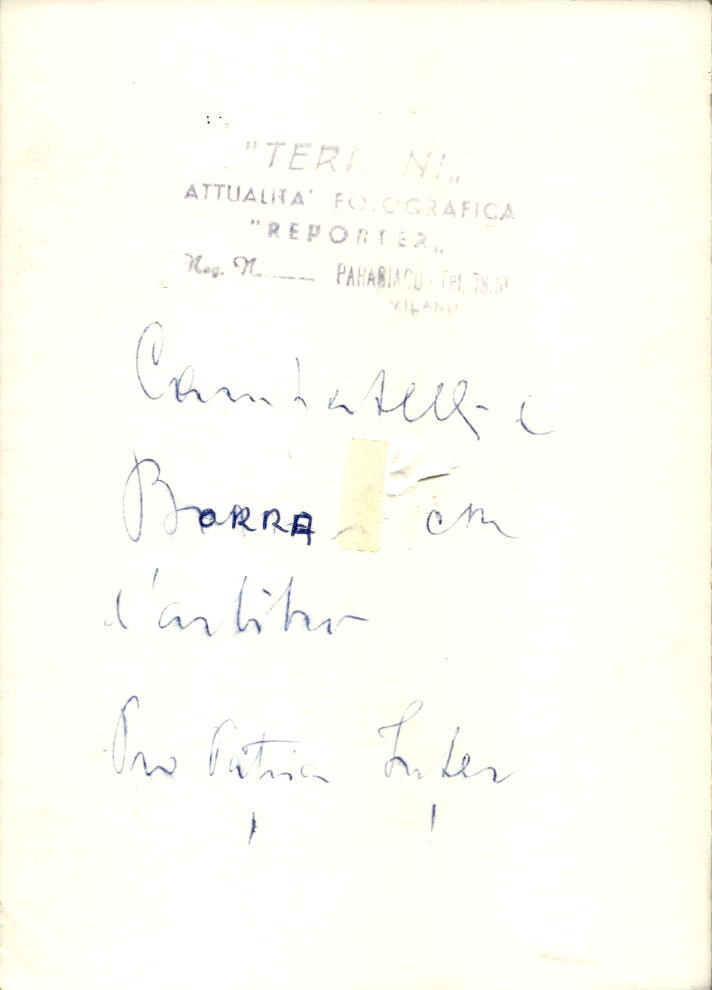 ATTUALITA' FOTOGRAFICA
"REPORTER„
Neg. N. PARABIAGO - Tel. 78.
MILANO
Campatelli e
BORRA con
l'arbitro
Pro Patria Inter
1 1